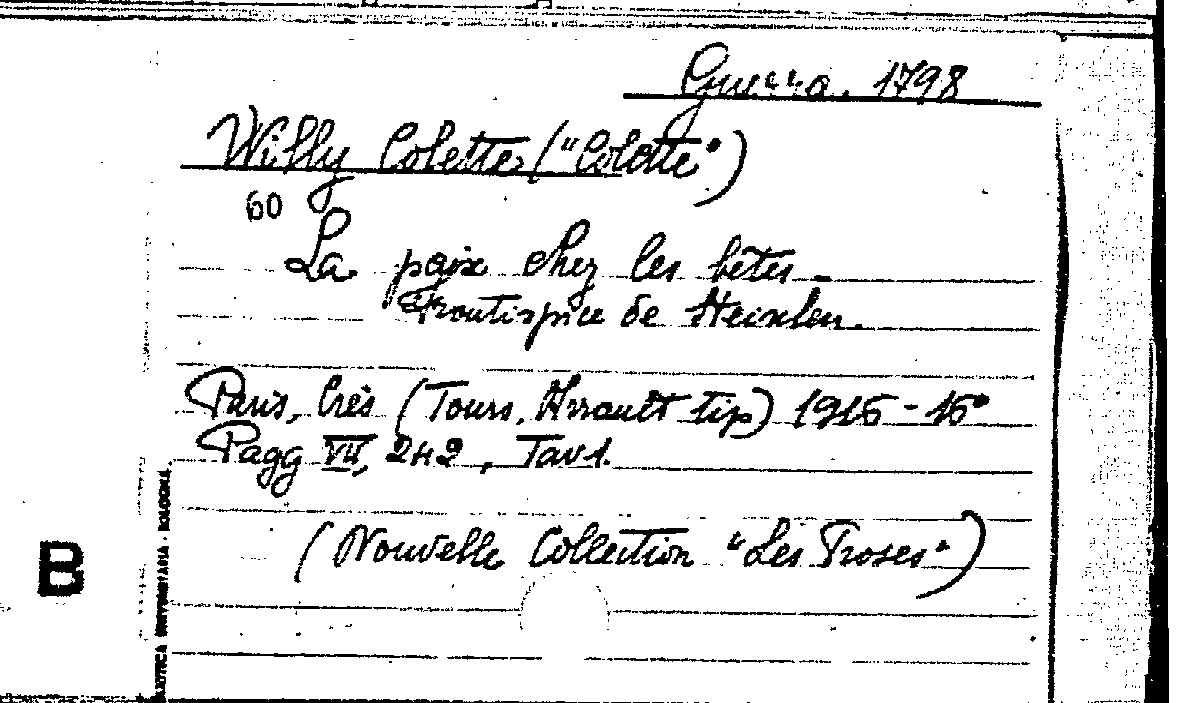 Guerra. 1798
Willy Colette ("Colette")
60
La paix chez les bêtes -
Frontispice de Steinlen.
Paris, Crès (Tours, Arrault tip) 1916 - 16°
Pagg VII, 242, Tav 1.
(Nouvelle Collection "Les Proses")
B
BIBLIOTECA UNIVERSITARIA - BOLOGNA.